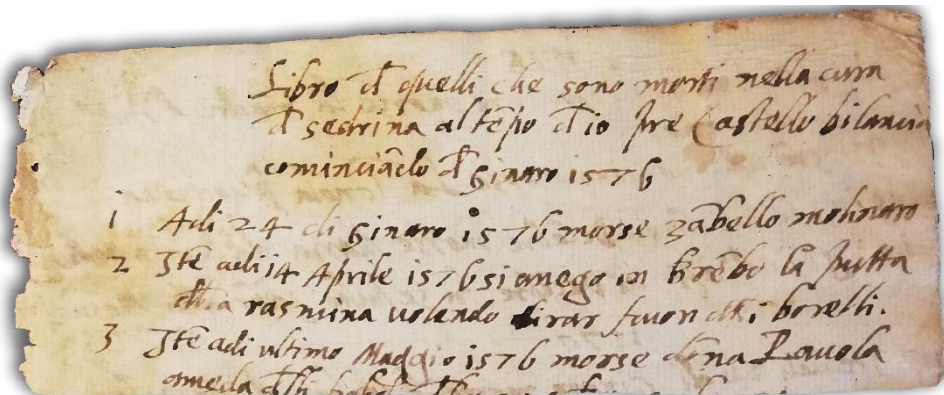 Libro d̄ quelli che sono morti nella cura
d̄ sedrina al tēpo d̄ io pre Castello bilancia
cominciādo d̄ Ginaro 1576
1 Adi 24 di Ginaro 1576 morse zābello molinaro
2 Itē adi 14 Aprile 1576 si anego in brēbo la putta
dlla rasmina volendo tirar fuori dlli borelli.
3 Itē adi ultimo Maggio 1576 morse dōna Pauola
ameda dlli